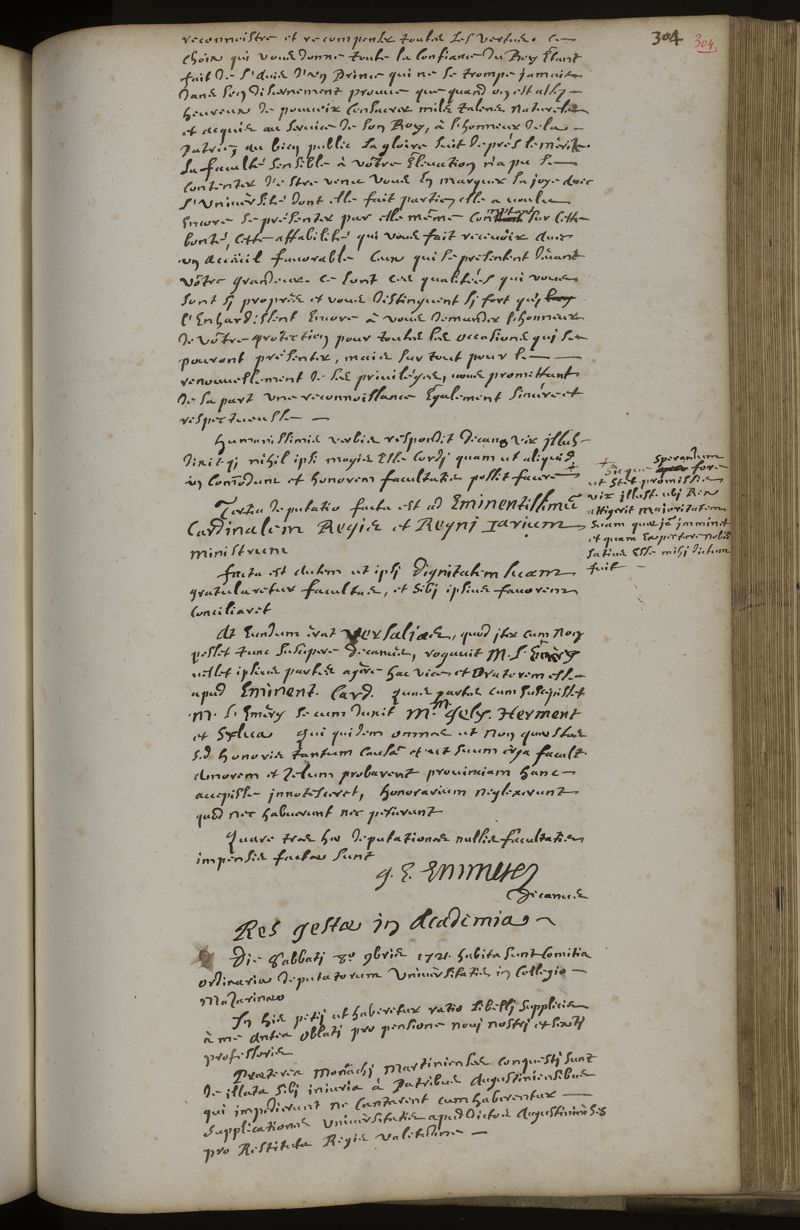 304 304
reconnoistre et recompenser toutes les vertus. Ce
choix qui vous donne toute la confiance du Roy Étant
fait de l'avis d'un Prince qui ne se trompe jamais
dans son discernement prouve que quand on est assez
heureux de pouvoir consacrer mile talens naturels
et acquis au service de son Roy, à l'honneur de la
patrie, au bien public la gloire suit de prés le mérite
La faculté sensible à vôtre Élevation n'a pu se
contenter d'estre venu vous En marquer sa joye avec
l'Université dont elle fait partie, elle a voulu
Encore se présenter par elle même comptant sur cette
bonté, cette affabilité qui vous fait recevoir avec
un accüeil favorable Ceux qui se presentent devant
vôtre grandeur. Ce sont ces qualitées qui vous
sont si propres et vous distinguent si fort qui
l'Enhardissent Encore à vous demander l'honneur
de vôtre protection pour toutes les occasions qui se
pouront présenter, mais sur tout pour le
renouvellement de ses priviléges, vous promettant
de sa part une reconnoissance Egalement sincére et
respectueuse
humanissimis verbis respondit decano vir illus-
dixitqj nihil ipsi magis esse cordj quam ut aliquid
in commodum et honorem facultatis possit facere +
+ sicque sperandum fore
ut stet promissis
vir illust. ubj Rex
attigerit majoritatem
suam quae jã imminet
et quam Expectare nobis
satius esse mihj dictum
fuit
Tertia deputatio facta est ad Eminentissimũ
Cardinalem Regis et Regnj 1arium
ministrum
facta est autem ut ipsi dignitatem suam
gratularetur facultas, et sibj ipsius favorem
conciliaret
At Eundum erat versalias, quod iter cum non
posset tunc suscipere decanus, rogavit M. S. Emery
vellet ipsius partes agere hac vice et oratorem esse
apud Eminent. Card. quas partes cum suscepisset
M. S. Emery secum duxit Mros Gely. Herment
et Sylva qui quidem omnes ut non quaestus
sed honoris tantum causa et ut suum erga facult.
amorem et zelum probarent provinciam hanc
accepisse innotesceret, honorarium neglexerunt
quod nec habuerunt nec petierunt
Quare tres hae deputationes nullis facultatis
impensis factae sunt
Decanus
Res gestae in Academia
Die Sabbatj 8º 9bris 1721. habita sunt Comitia
ordinaria deputatorum Universitatis in Collegio
Mazarinaeo
In his petij ut haberetur ratio libellj supplicis
à me antea oblatj pro pensione novj nostrj et sextj
professoris
Praeterea monachj Martinienses conquestj sunt
de illata sibj iniuria à Patribus Augustiniensibus
qui impedierunt ne cantarent cum haberentur
supplicationes Universitatis apud dictos Augustinienses
pro Restituta Regis valetudine